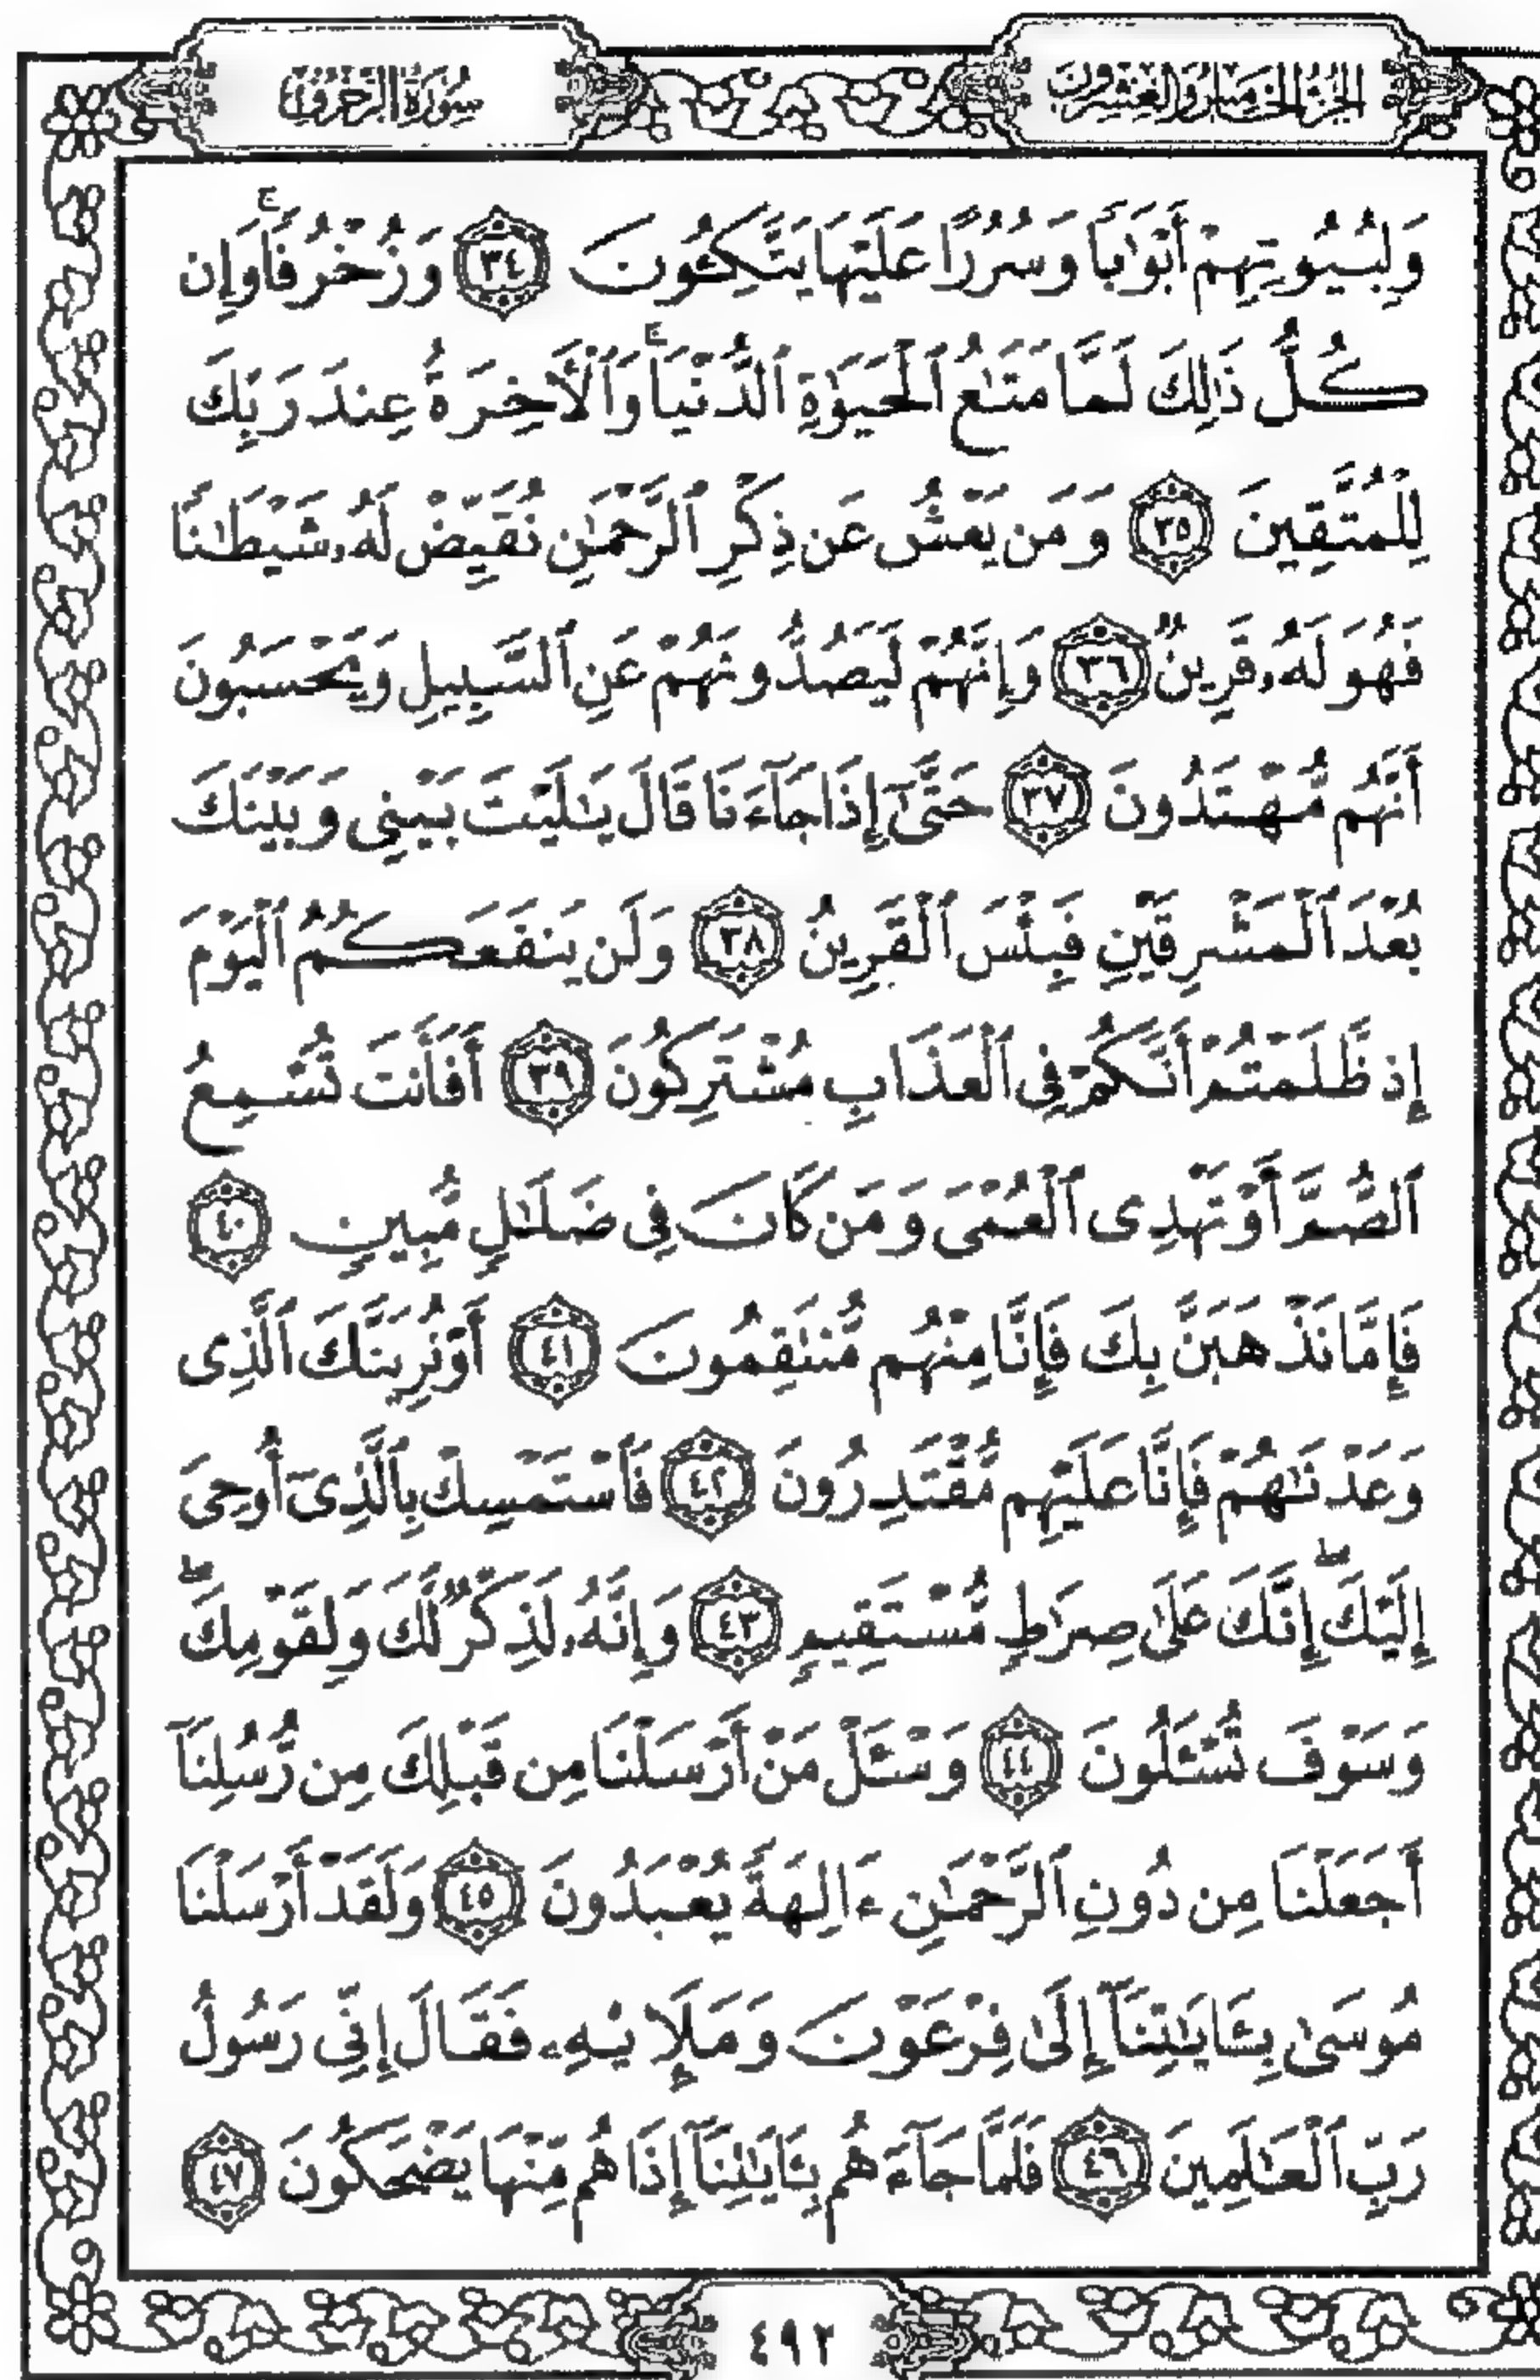 الجزء الخامس والعشرون
سورة الزخرف
وَلِبُيُوتِهِمْ أَبْوَٰبًا وَسُرُرًا عَلَيْهَا يَتَّكِـُٔونَ ٣٤ وَزُخْرُفًا ۚ وَإِن
كُلُّ ذَٰلِكَ لَمَّا مَتَـٰعُ ٱلْحَيَوٰةِ ٱلدُّنْيَا ۚ وَٱلْأَخِرَةُ عِندَ رَبِّكَ
لِلْمُتَّقِينَ ٣٥ وَمَن يَعْشُ عَن ذِكْرِ ٱلرَّحْمَـٰنِ نُقَيِّضْ لَهُۥ شَيْطَـٰنًا
فَهُوَ لَهُۥ قَرِينٌ ٣٦ وَإِنَّهُمْ لَيَصُدُّونَهُمْ عَنِ ٱلسَّبِيلِ وَيَحْسَبُونَ
أَنَّهُم مُّهْتَدُونَ ٣٧ حَتَّىٰٓ إِذَا جَآءَنَا قَالَ يَـٰلَيْتَ بَيْنِى وَبَيْنَكَ
بُعْدَ ٱلْمَشْرِقَيْنِ فَبِئْسَ ٱلْقَرِينُ ٣٨ وَلَن يَنفَعَكُمُ ٱلْيَوْمَ
إِذ ظَّلَمْتُمْ أَنَّكُمْ فِى ٱلْعَذَابِ مُشْتَرِكُونَ ٣٩ أَفَأَنتَ تُسْمِعُ
ٱلصُّمَّ أَوْ تَهْدِى ٱلْعُمْىَ وَمَن كَانَ فِى ضَلَـٰلٍ مُّبِينٍ ٤٠
فَإِمَّا نَذْهَبَنَّ بِكَ فَإِنَّا مِنْهُم مُّنتَقِمُونَ ٤١ أَوْ نُرِيَنَّكَ ٱلَّذِى
وَعَدْنَـٰهُمْ فَإِنَّا عَلَيْهِم مُّقْتَدِرُونَ ٤٢ فَٱسْتَمْسِكْ بِٱلَّذِىٓ أُوحِىَ
إِلَيْكَ ۖ إِنَّكَ عَلَىٰ صِرَٰطٍ مُّسْتَقِيمٍ ٤٣ وَإِنَّهُۥ لَذِكْرٌ لَّكَ وَلِقَوْمِكَ ۖ
وَسَوْفَ تُسْـَٔلُونَ ٤٤ وَسْـَٔلْ مَنْ أَرْسَلْنَا مِن قَبْلِكَ مِن رُّسُلِنَآ
أَجَعَلْنَا مِن دُونِ ٱلرَّحْمَـٰنِ ءَالِهَةً يُعْبَدُونَ ٤٥ وَلَقَدْ أَرْسَلْنَا
مُوسَىٰ بِـَٔايَـٰتِنَآ إِلَىٰ فِرْعَوْنَ وَمَلَإِي۟هِۦ فَقَالَ إِنِّى رَسُولُ
رَبِّ ٱلْعَـٰلَمِينَ ٤٦ فَلَمَّا جَآءَهُم بِـَٔايَـٰتِنَآ إِذَا هُم مِّنْهَا يَضْحَكُونَ ٤٧
٤٩٢